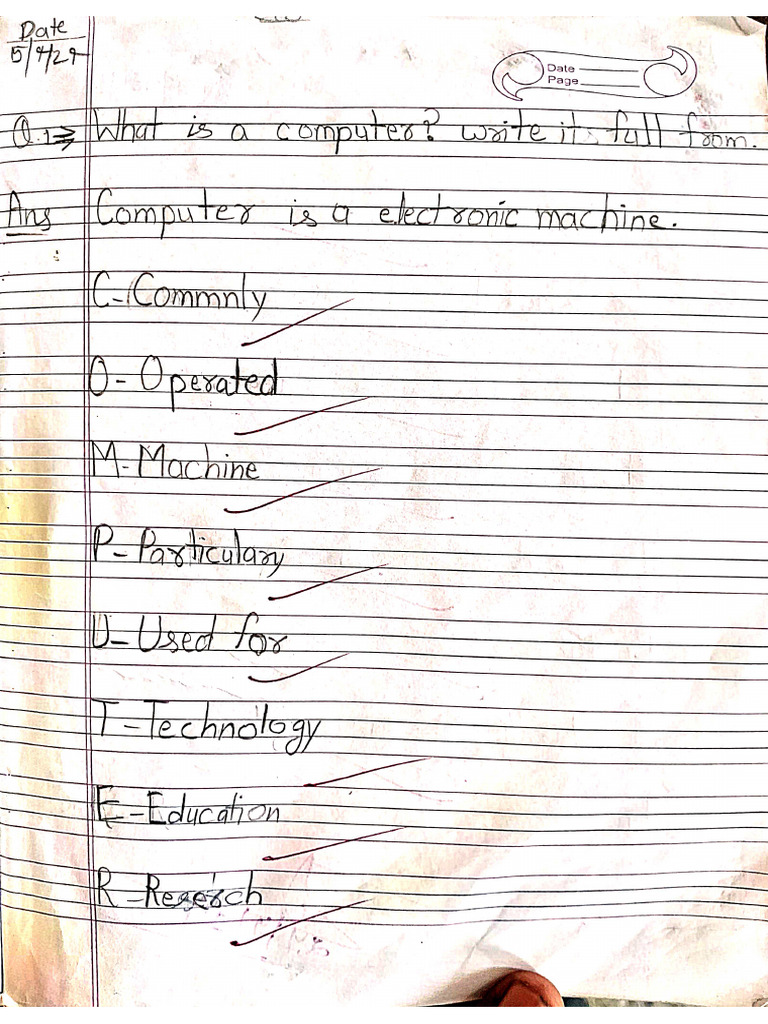 Date
5/4/24
Date
Page
Q.1⇒ What is a computer? write it full from.
Ans Computer is a electronic machine.
C-Commnly
O-Operated
M-Machine
P-Particulary
U-Used for
T-Technology
E-Education
R-Reserch